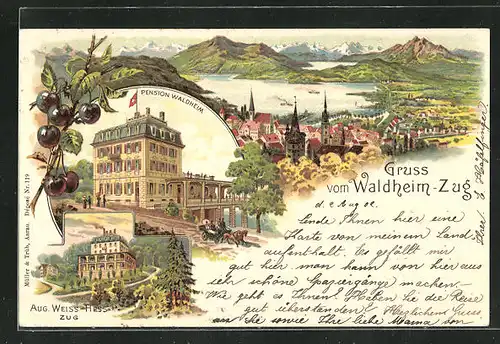 PENSION WALDHEIM
Gruss
vom Waldheim-Zug.
Müller & Trüb, Aarau.
AUG. WEISS-HESS
ZUG
d. 2 Aug 02.
Sende Ihnen hier eine
Karte von meinem Land-
aufenthalt. Es gefällt mir
gut hier man kann von hier aus
sehr schöne Spaziergänge machen.
Wie geht es Ihnen? Haben Sie die Reise
gut überstanden? Herzlichen Gruss
an Sie sowie Ihre liebe Mama von